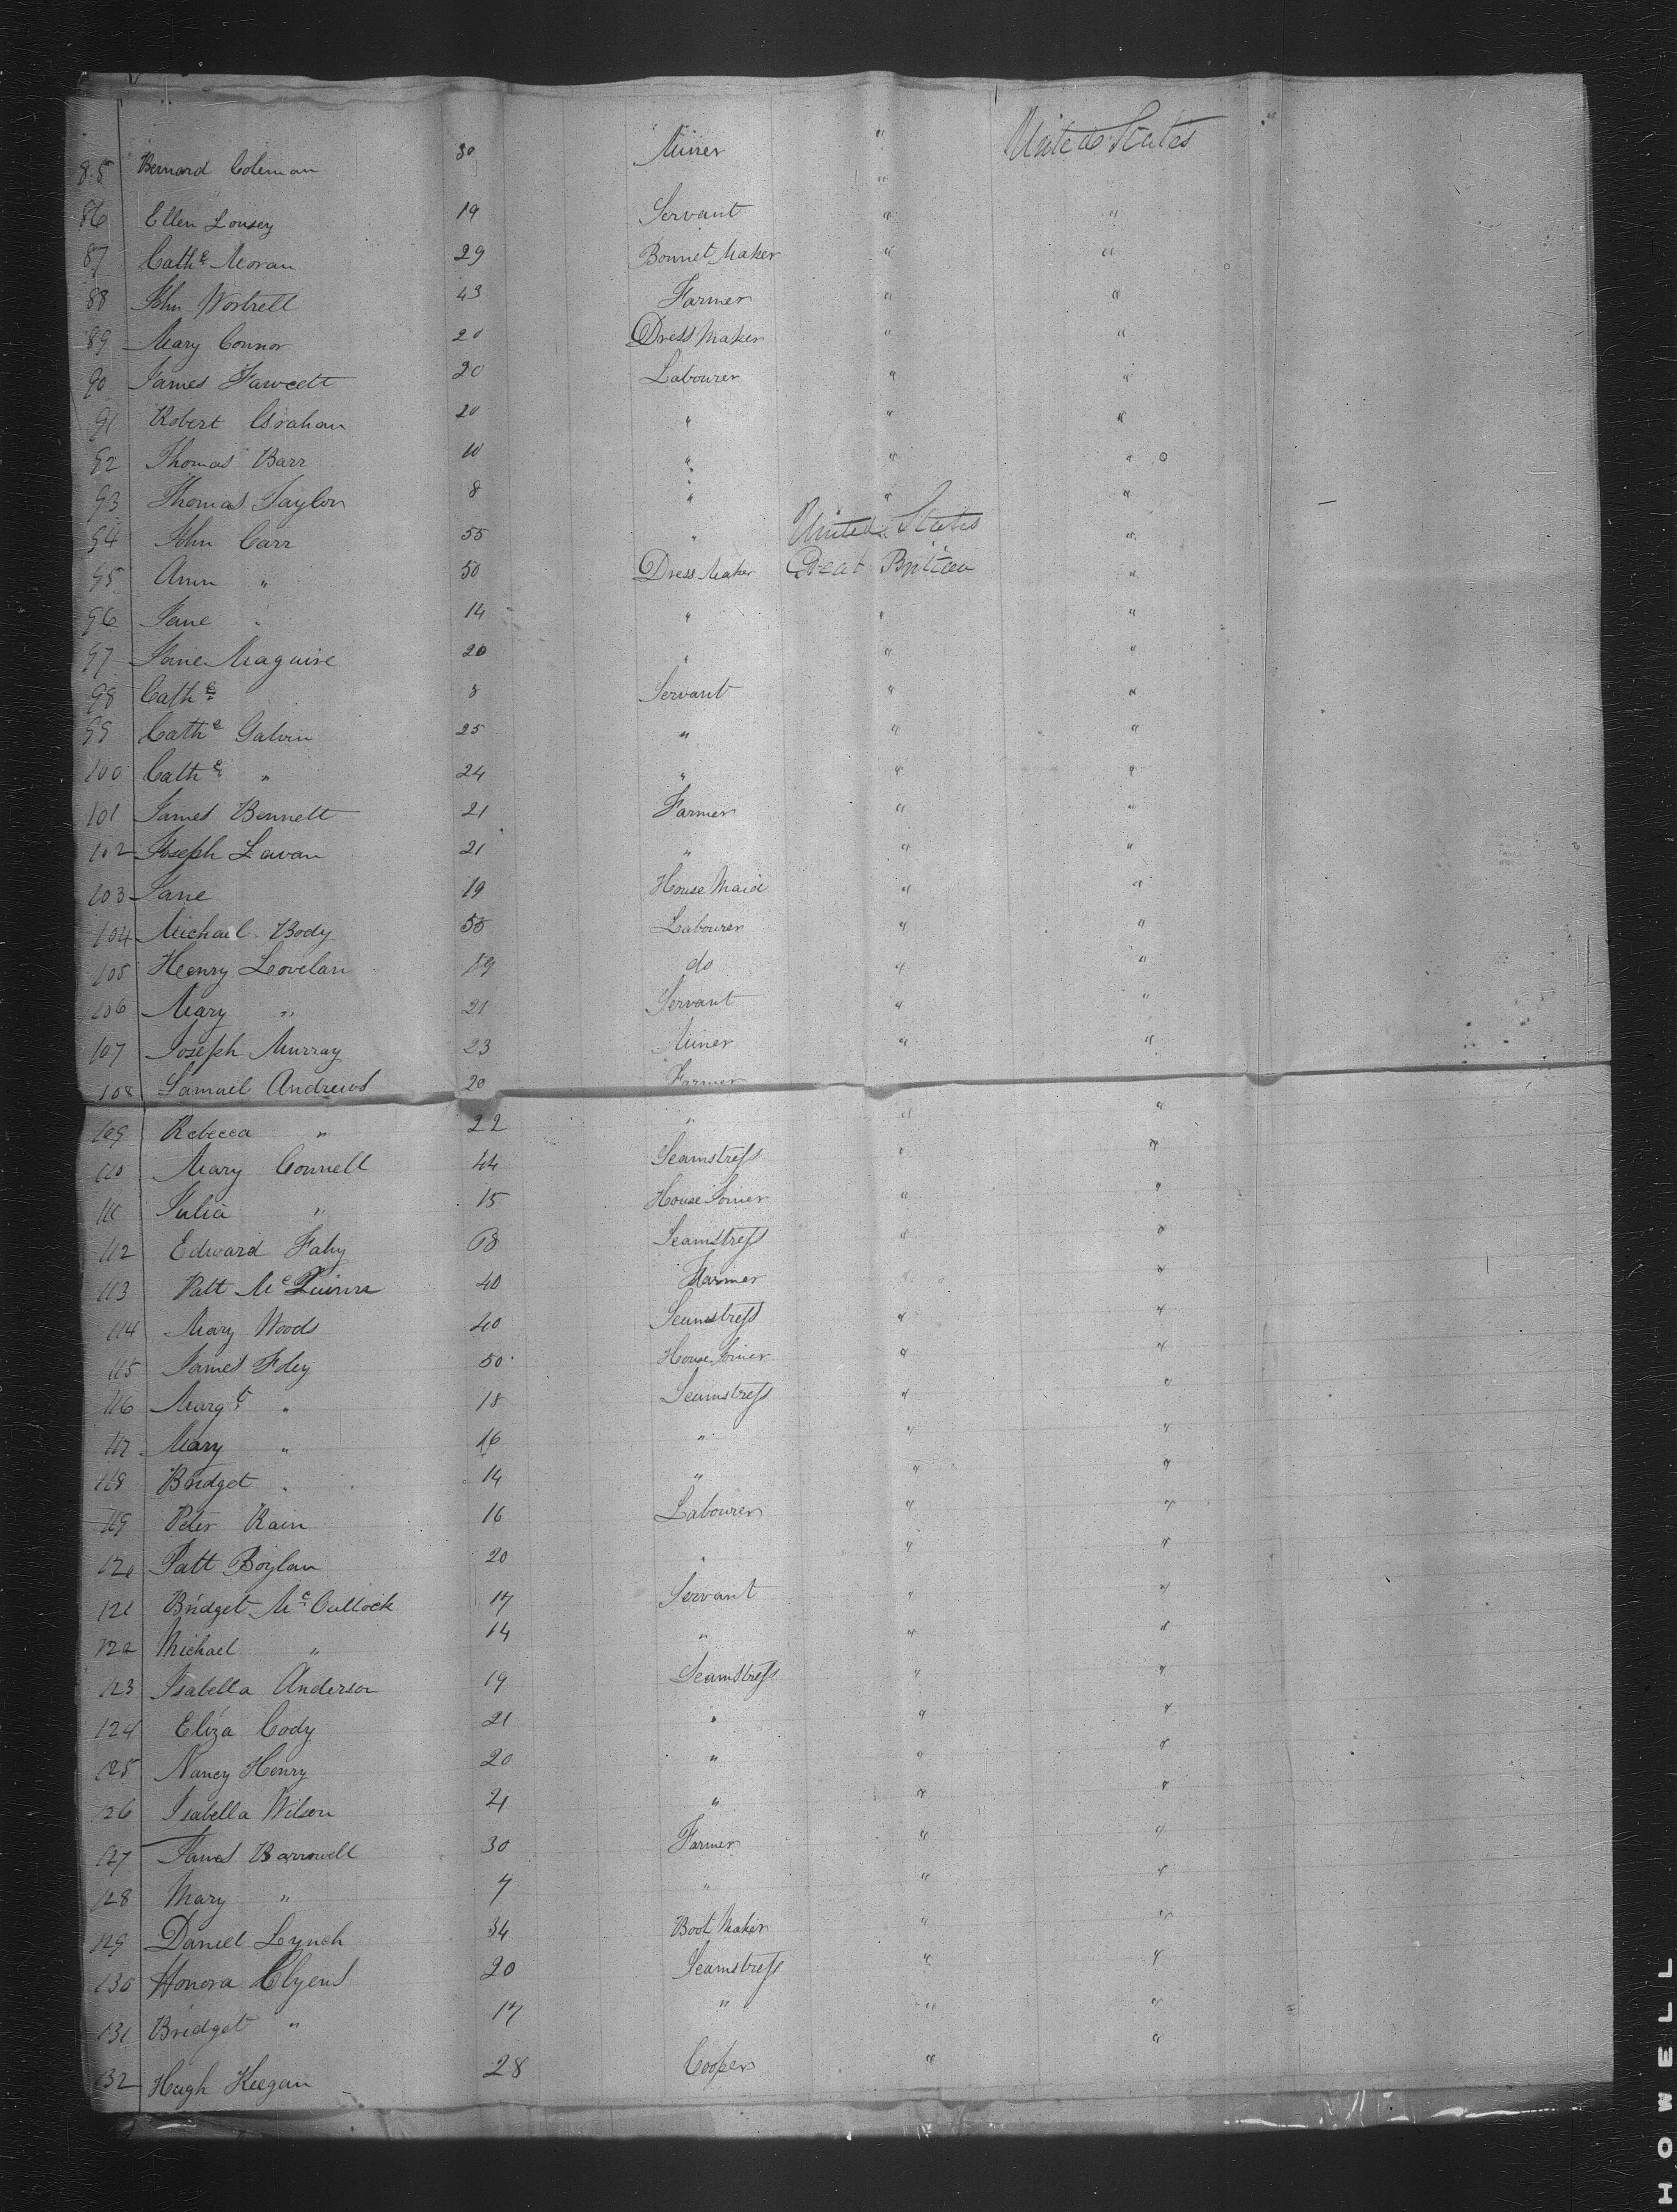 85 Bernard Coleman 30 Miner " United States
86 Ellen Lousey 19 Servant " "
87 Cathe Moran 29 Bonnet Maker " "
88 John Wostrell 43 Farmer " "
89 Mary Connor 20 Dress Maker " "
90 James Fawcett 20 Labourer " "
91 Robert Graham 20 " " "
92 Thomas Barr 10 " " "
93 Thomas Taylor 8 " " "
94 John Carr 55 " United States "
95 Ann " 50 Dress Maker Great Britain "
96 Jane " 14 " " "
97 Jane Maguire 20 " " "
98 Cathe 8 Servant " "
99 Cathe Galvin 25 " " "
100 Cathe " 24 " " "
101 James Bennett 21 Farmer " "
102 Joseph Lavan 21 " " "
103 Jane 19 House Maid " "
104 Michael Body 55 Labourer " "
105 Henry Lovelan 19 do " "
106 Mary " 21 Servant " "
107 Joseph Murray 23 Miner " "
108 Samuel Andrews 20 Farmer
109 Rebecca " 22 " " "
110 Mary Connell 44 Seamstress " "
111 Julia " 15 House Joiner " "
112 Edward Fahy 68 Seamstress " "
113 Patt McQuinn 40 Farmer " "
114 Mary Woods 40 Seamstress " "
115 James Foley 50 House Joiner " "
116 Margt " 18 Seamstress " "
117 Mary " 16 " " "
118 Bridget " 14 " " "
119 Peter Kain 16 Labourer " "
120 Patt Boylan 20 " " "
121 Bridget McCullock 17 Servant " "
122 Michael " 14 " " "
123 Isabella Anderson 19 Seamstress " "
124 Eliza Cody 21 " " "
125 Nancy Henry 20 " " "
126 Isabella Wilson 21 " " "
127 James Barrowell 30 Farmer " "
128 Mary " 7 " " "
129 Daniel Lynch 34 Boot Maker " "
130 Honora Clyens 20 Seamstress " "
131 Bridget " 17 " " "
132 Hugh Keegan 28 Cooper " "
HOWELL